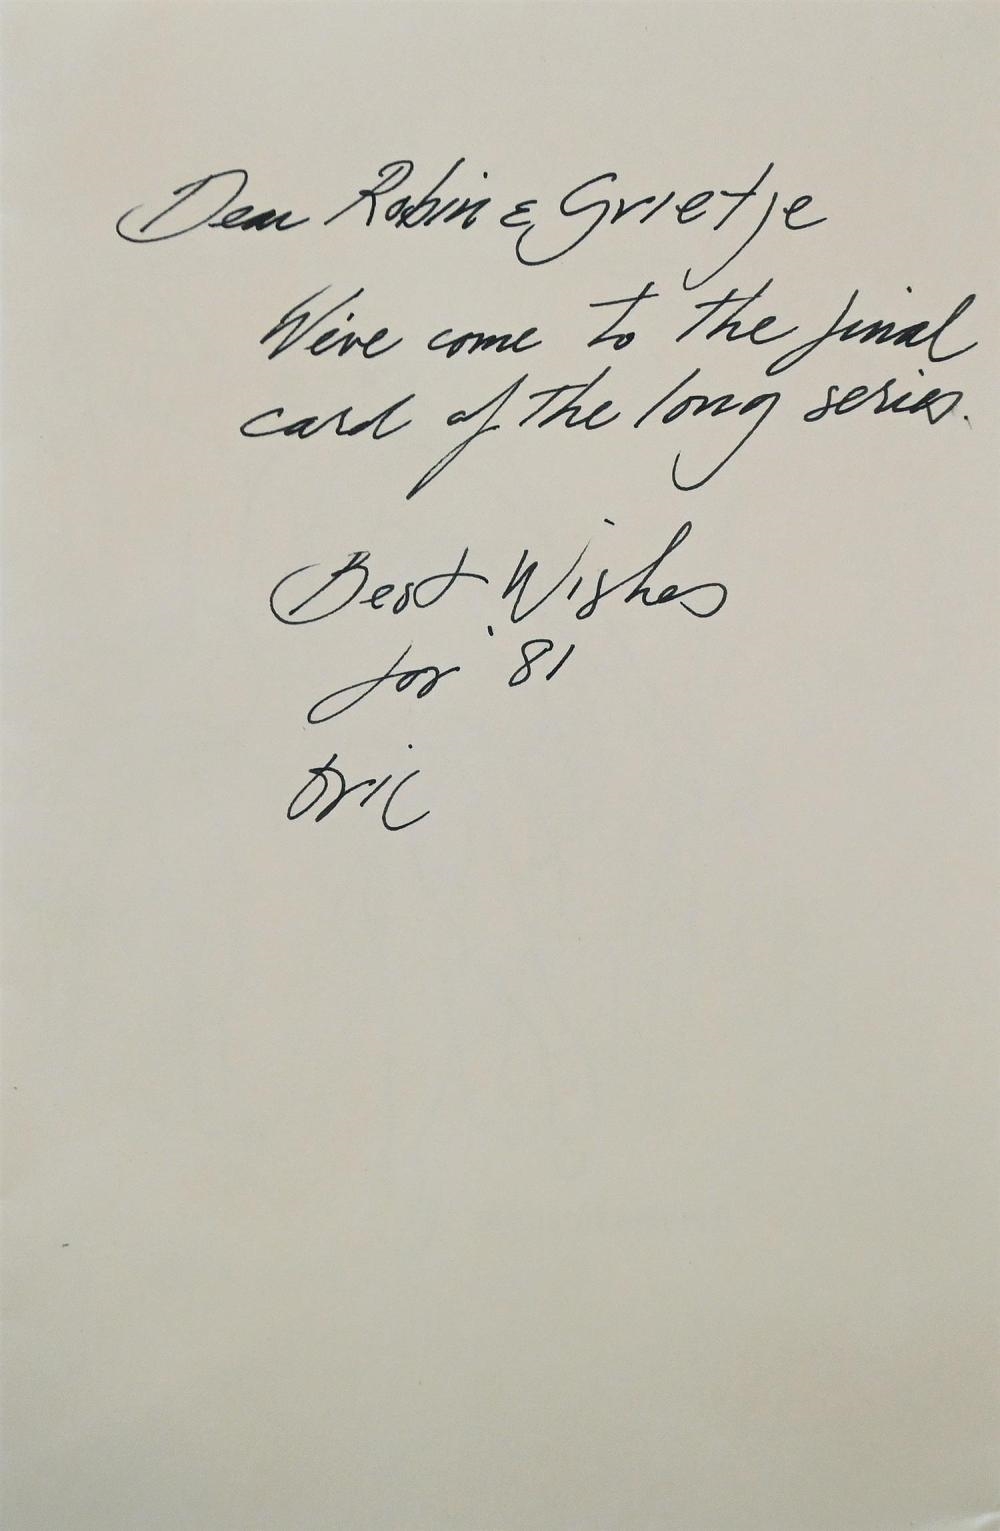 Dear Robin & Grietje
We've come to the final
card of the long series.
Best Wishes
for '81
Eric